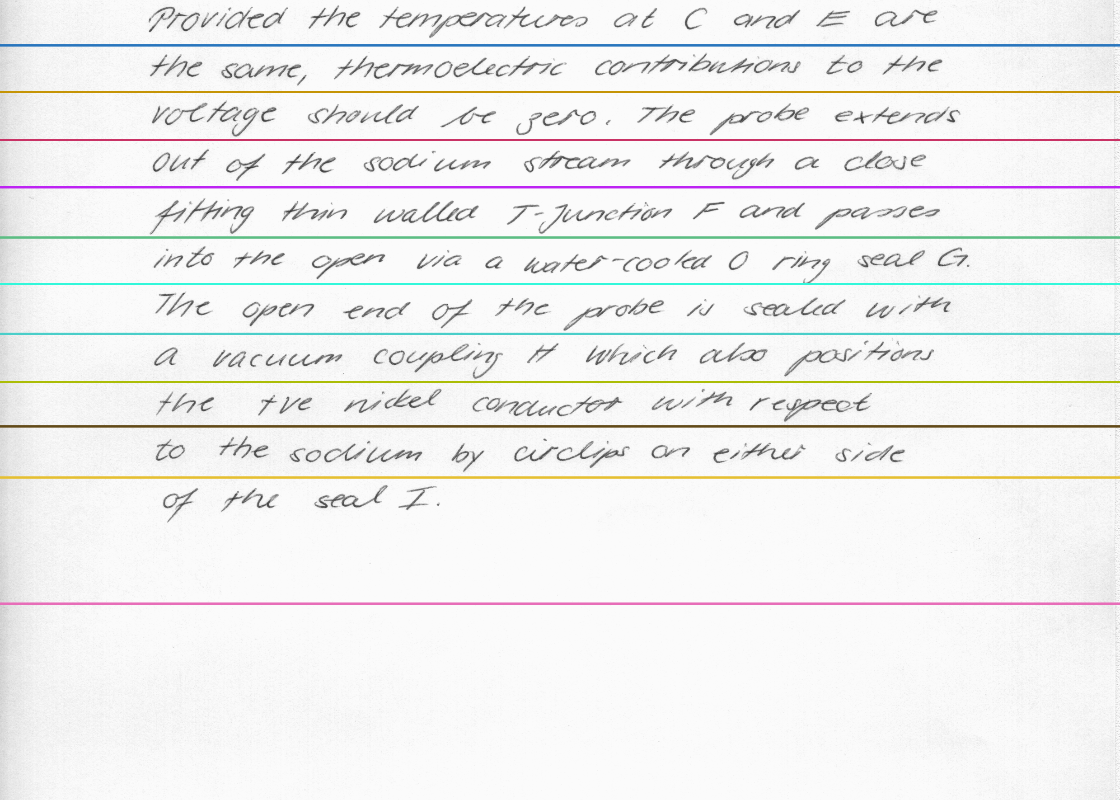 Provided the temperatures at C and E are
the same, thermoelectric contributions to the
voltage should be zero. The probe extends
out of the sodium stream through a close
fitting thin walled T-Junction F and passes
into the open via a water-cooled O ring seal G.
The open end of the probe is sealed with
a vacuum coupling H which also positions
the +ve nickel conductor with respect
to the sodium by circlips on either side
of the seal I.